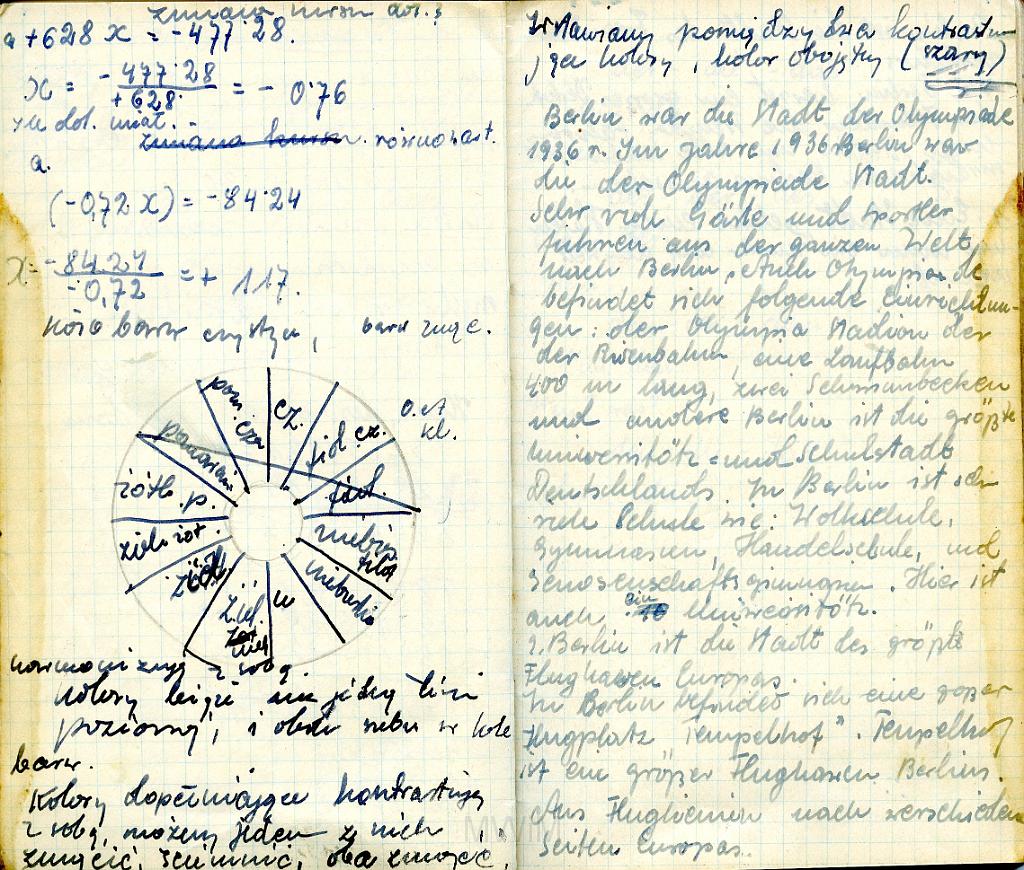 zmiana
+628 x = -477˙28.
x = -477˙28 / +628 = - 0˙76
dol. miał.
zmiana równowart.
a.
(-0,72 x) = -84˙24
x = -84.24 / -0,72 = + 117.
koło barw czystych, barw
pom. cz.
cz.
fiol. cz.
O.et
kl.
fiol.
niebies.
fiol
niebieski
żół.
ziel. żół.
żółt. p.
pomarań
harmonizują z sobą
kolory leżące na jednej linii
poziomej, i obok siebie w kole
barw.
Kolory dopełniające kontrastują
z sobą, możemy jeden z nich
zmącić, ściemnić, oba zmącić,
Wstawiamy pomiędzy dwa kontrastu-
jące kolory, kolor obojętny (szary)
Berlin war die Stadt der Olympiade
1936 r. Im Jahre 1936 Berlin war
die der Olympiade Stadt.
Sehr viele Gäste und Sportler
fuhren aus der ganzen Welt
nach Berlin. Auch Olympiade
befindet sich folgende Einrichtun-
gen: der Olympia Stadion der
der Riesenbahn, eine Laufbahn
400 m lang, zwei Schwimmbecken
und andere Berlin ist die größte
Universitäts = und Schulstadt
Deutschlands. In Berlin ist sehr
viele Schule wie: Volkschule,
Gymnasien, Handelschule, und
Genosenschäftsgimnasien. Hier ist
auch ein Universitätz.
2. Berlin ist die Stadt des größte
Flughaven Europas.
In Berlin befindet sich eine goßer
Flugplatz "Tempelhof". Tempelhof
ist ein größer Flughaven Berlins.
Aus Fluglienien nach verschieden
Seiten Europas.